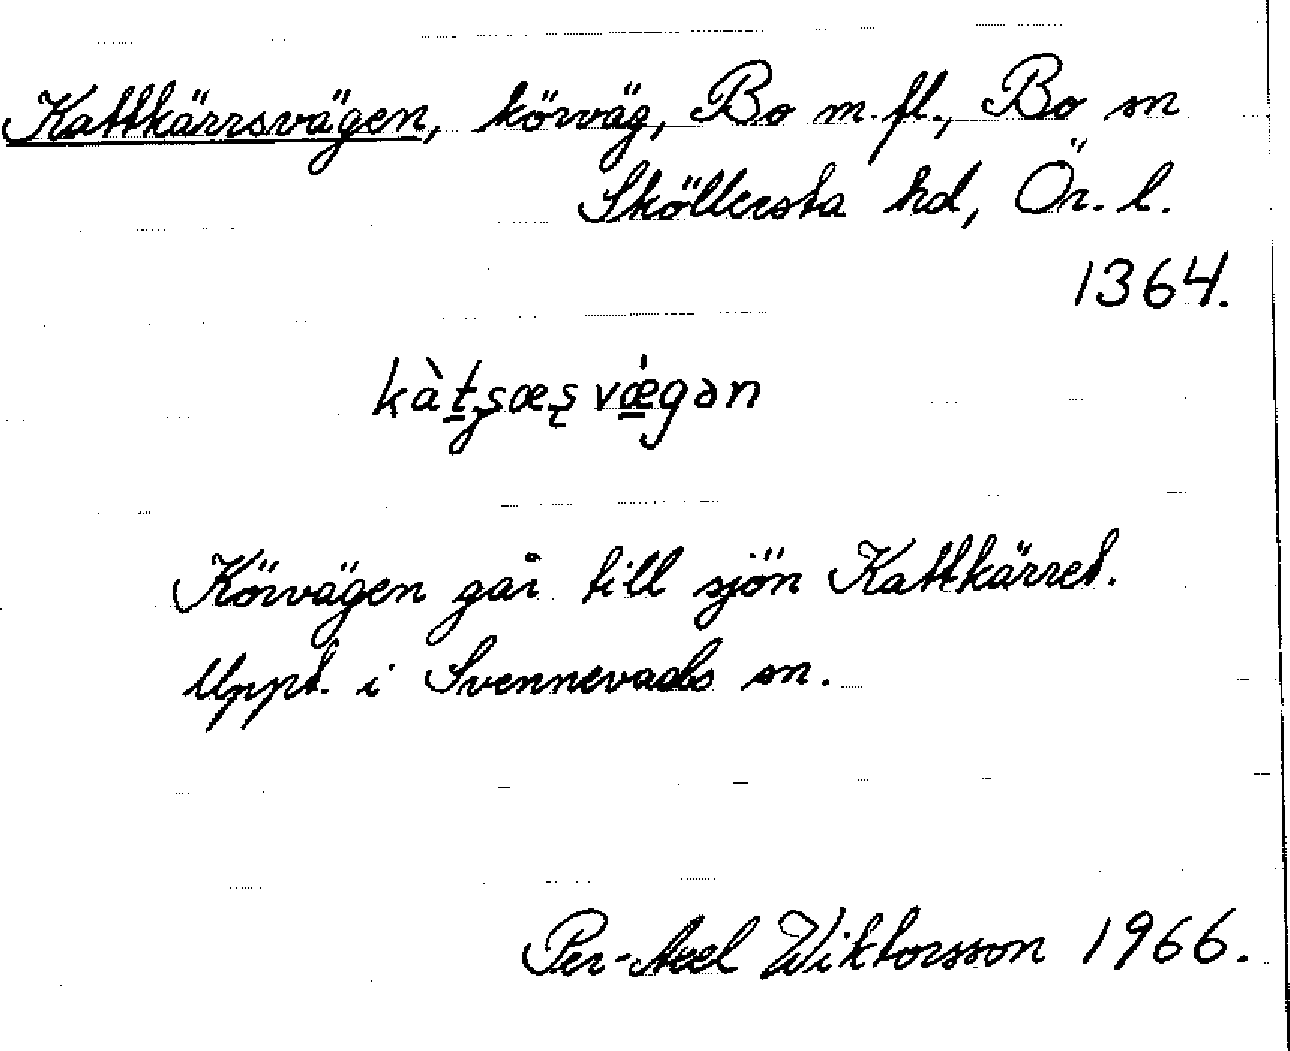 Kattkärrsvägen, körväg, Bo m.fl., Bo sn
Sköllersta hd, Ör. l.
1364.
kàt̠ʂæʂ vǽ̠gən
Körvägen går till sjön Kattkärret.
Uppt. i Svennevads sn.
Per-Axel Wiktorsson 1966.